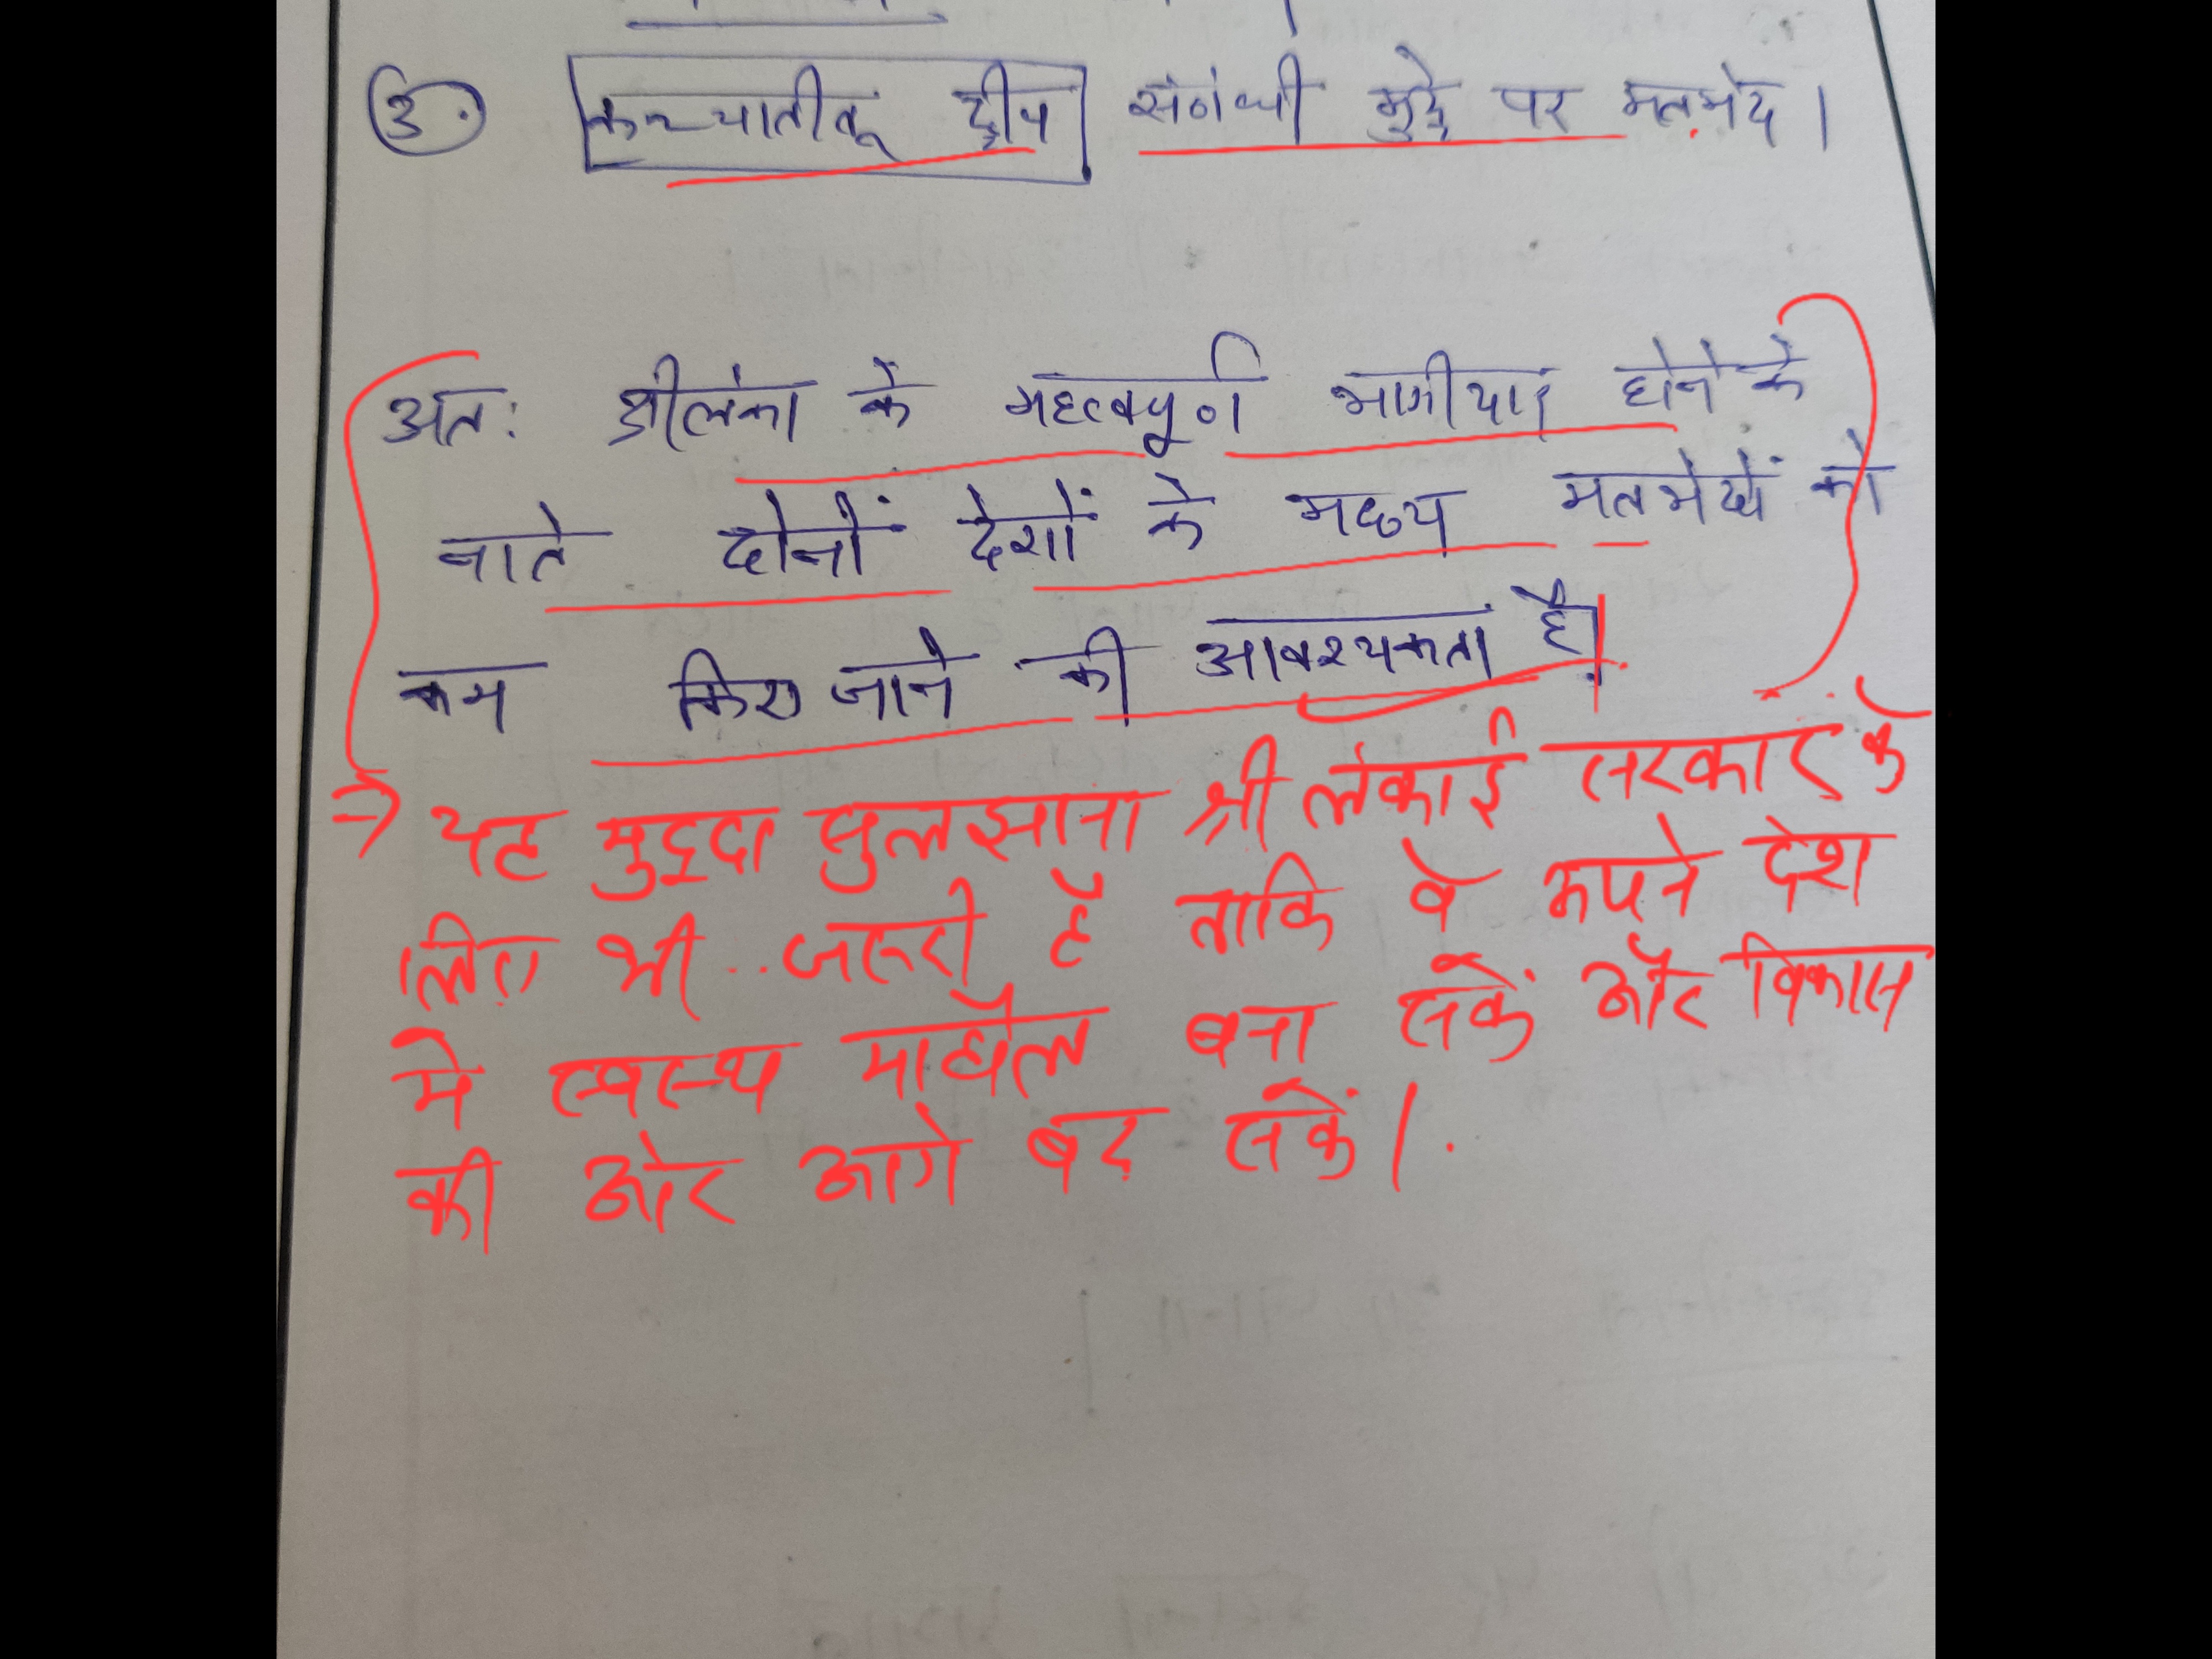 3. कच्चातीवू द्वीप संबंधी मुद्दे पर मतभेद।
अतः श्रीलंका के महत्वपूर्ण भागीदार होने के
नाते दोनों देशों के मध्य मतभेदों को
कम किए जाने की आवश्यकता है।
→ यह मुद्दा सुलझाना श्री लंकाई सरकार के
लिए भी जरूरी है ताकि वे अपने देश
मे स्वस्थ माहौल बना सकें और विकास
की ओर आगे बढ़ सकें।